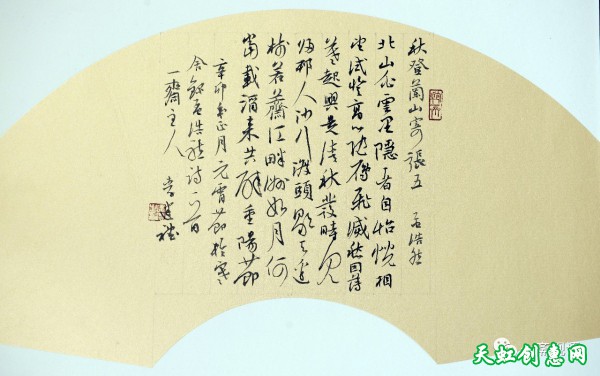 秋登蘭山寄張五 孟浩然
北山白雲里隱者自怡悅相
望試登高心隨雁飛滅愁因薄
暮起興是清秋發時見
歸村人沙行渡頭歇天邊
樹若薺江畔洲如月何
當載酒來共醉重陽節
辛卯年正月元宵節於寒
舍錄孟浩然詩一首
一齋主人
天虹创惠网